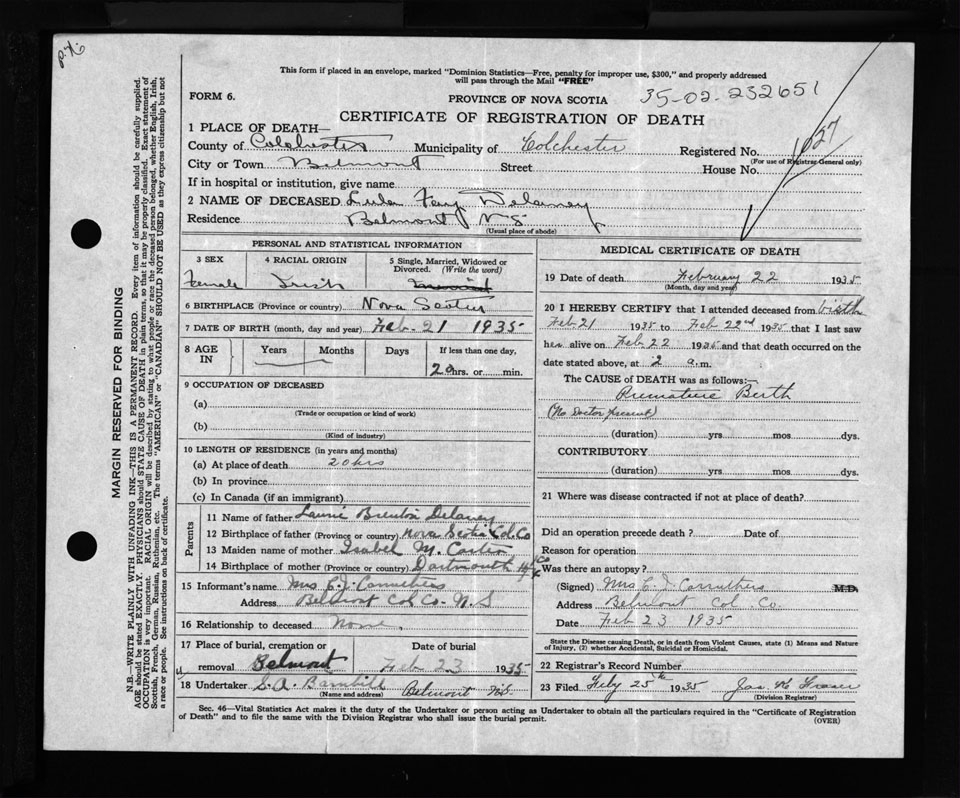 This form if placed in an envelope, marked "Dominion Statistics—Free, penalty for improper use, $300," and properly addressed
will pass through the Mail "FREE"
FORM 6.
PROVINCE OF NOVA SCOTIA
35-02-232651
CERTIFICATE OF REGISTRATION OF DEATH
1 PLACE OF DEATH—
County of Colchester Municipality of Colchester Registered No.
(For use of Registrar General only)
City or Town Belmont Street House No.
If in hospital or institution, give name
2 NAME OF DECEASED Lula Fay Delaney
Residence Belmont N S
(Usual place of abode)
PERSONAL AND STATISTICAL INFORMATION
3 SEX
Female
4 RACIAL ORIGIN
Irish
5 Single, Married, Widowed or
Divorced. (Write the word)
6 BIRTHPLACE (Province or country) Nova Scotia
7 DATE OF BIRTH (month, day and year) Feb-21 1935
8 AGE IN
Years Months Days If less than one day,
20 hrs. or min.
9 OCCUPATION OF DECEASED
(a)
(Trade or occupation or kind of work)
(b)
(Kind of industry)
10 LENGTH OF RESIDENCE (in years and months)
(a) At place of death 20 hrs
(b) In province
(c) In Canada (if an immigrant)
Parents
11 Name of father Brenton Delaney
12 Birthplace of father (Province or country) Nova Scotia Col. Co
13 Maiden name of mother Isabel M. Carter
14 Birthplace of mother (Province or country) Dartmouth
15 Informant's name Mrs C. J. Carruthers
Address Belmont Col Co. N. S
16 Relationship to deceased None.
17 Place of burial, cremation or removal Belmont
Date of burial
Feb 23 1935
18 Undertaker S. A. Belmont N.S.
(Name and address)
MEDICAL CERTIFICATE OF DEATH
19 Date of death February 22 1935
(Month, day and year)
20 I HEREBY CERTIFY that I attended deceased from birth
Feb 21 1935 to Feb 22nd 1935 that I last saw
her alive on Feb 22 1935 and that death occurred on the
date stated above, at 2 a.m.
The CAUSE OF DEATH was as follows:—
Premature Birth
(No Doctor present)
(duration) yrs mos dys.
CONTRIBUTORY
(duration) yrs mos dys.
21 Where was disease contracted if not at place of death?
Did an operation precede death? Date of
Reason for operation
Was there an autopsy?
(Signed) Mrs C. J. Carruthers M.D.
Address Belmont Col. Co.
Date Feb 23 1935
State the Disease causing Death, or in death from Violent Causes, state (1) Means and Nature
of Injury, (2) whether Accidental, Suicidal or Homicidal.
22 Registrar's Record Number
23 Filed July 25th 1935 Jas K Fraser
(Division Registrar)
Sec. 46—Vital Statistics Act makes it the duty of the Undertaker or person acting as Undertaker to obtain all the particulars required in the "Certificate of Registration
of Death" and to file the same with the Division Registrar who shall issue the burial permit.
(OVER)
MARGIN RESERVED FOR BINDING
N.B.—WRITE PLAINLY WITH UNFADING INK—THIS IS A PERMANENT RECORD. Every item of information should be carefully supplied.
AGE should be stated EXACTLY. PHYSICIANS should STATE CAUSE OF DEATH in plain terms, so that it may be properly classified. Exact statement of
OCCUPATION is very important. RACIAL ORIGIN will be described by stating to what people or race the deceased person belonged, whether English, Irish,
Scottish, French, German, Russian, Ruthenian, etc. The terms "AMERICAN" or "CANADIAN" SHOULD NOT BE USED as they express citizenship but not
a race or people. See instructions on back of certificate.